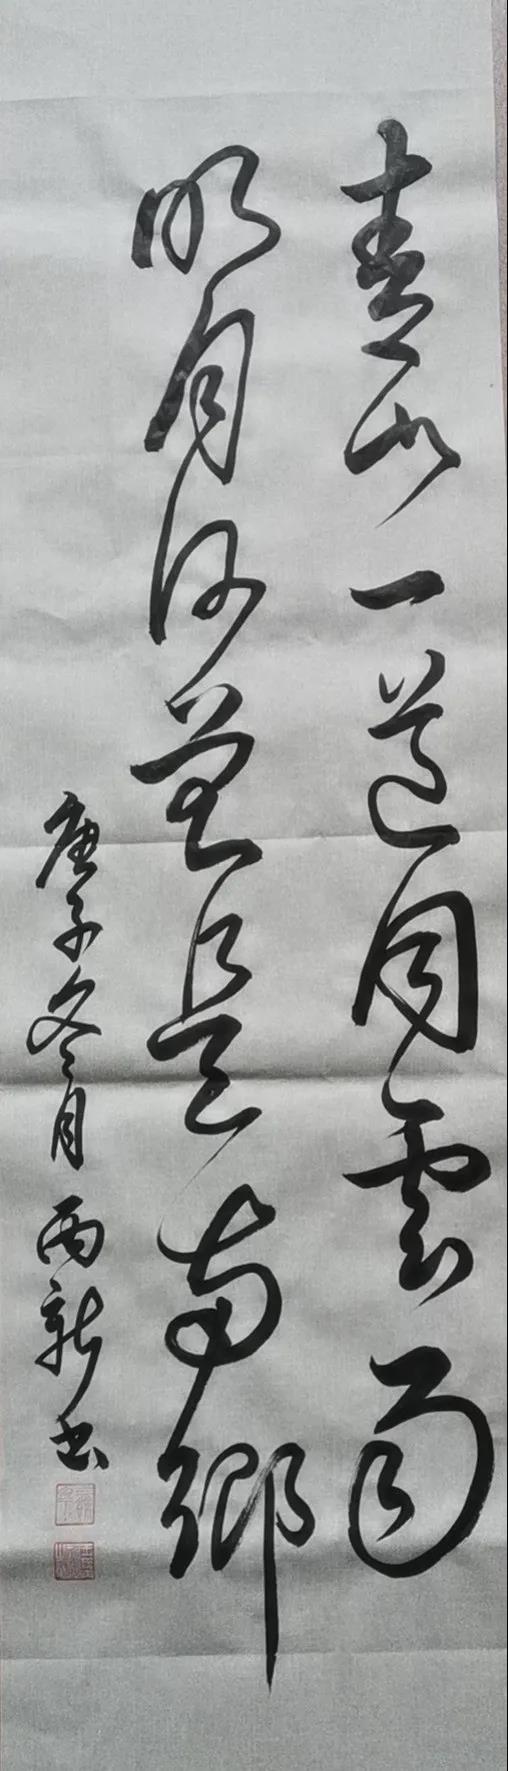 青山一道同雲雨
明月何曾是兩鄉
庚子冬月丙新书